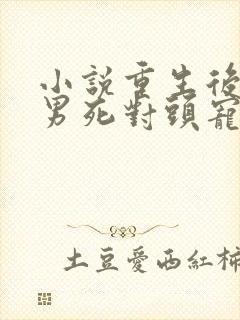 小說重生後
男死對頭寵
土豆愛西紅柿